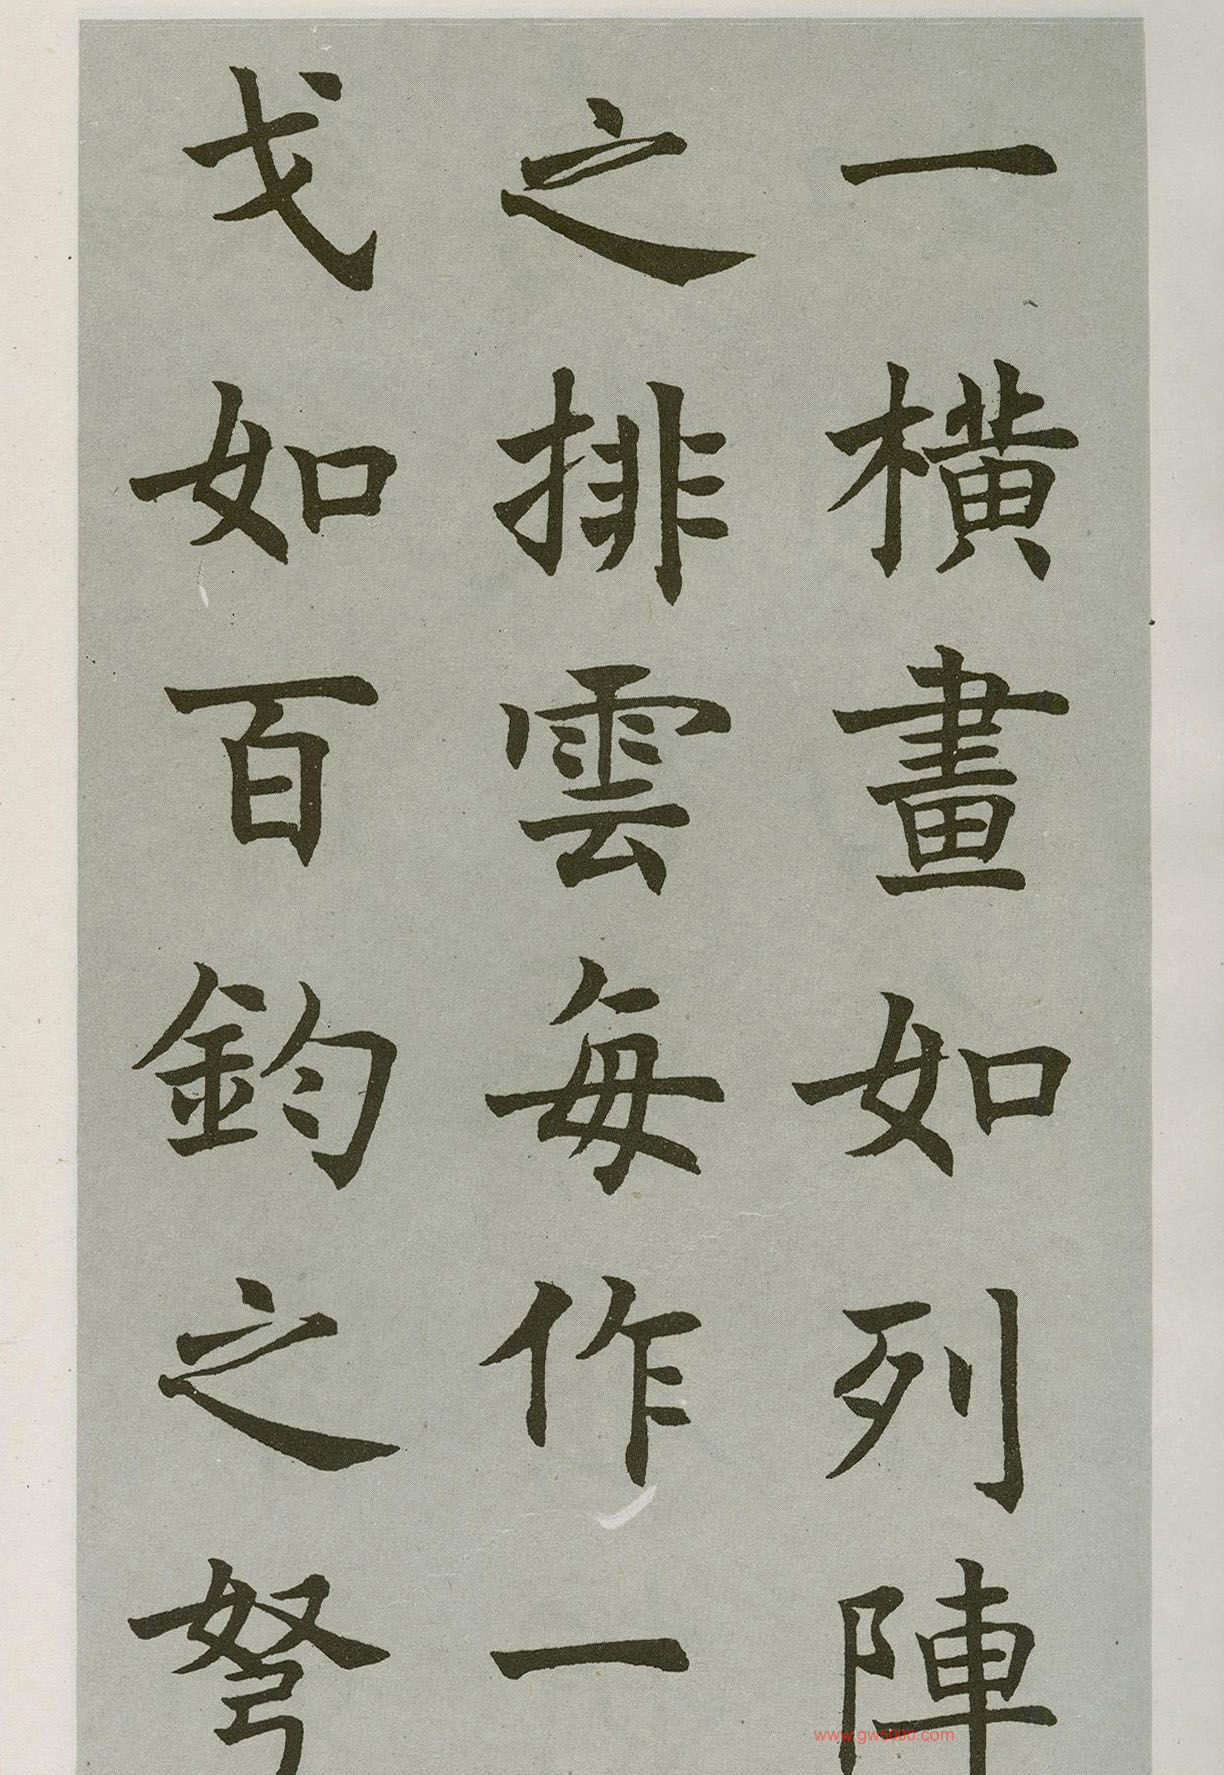 一橫畫如列陣
之排雲每作一
戈如百鈞之弩
www.gw5000.com